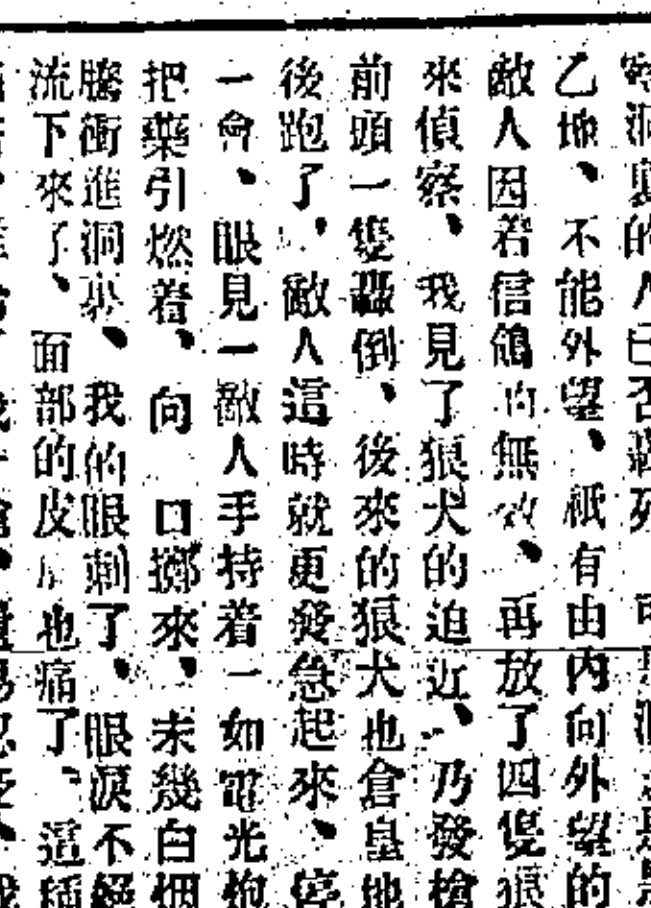 洞裏的人已否轟死　可是洞
乙地、不能外望、祇有由內向外望的
敵人因着信鴿的無效、再放了四隻狼
來偵察、我見了狼犬的迫近、乃發槍
前頭一隻轟倒、後來的狼犬也倉皇地
後跑了、敵人這時就更發急起來、停
一會、眼見一敵人手持着一如電光炮
把藥引燃着、向　口擲來、未幾白烟
騰衝進洞裏、我的眼刺了、眼淚不絕
流下來了、面部的皮　也痛了、這種